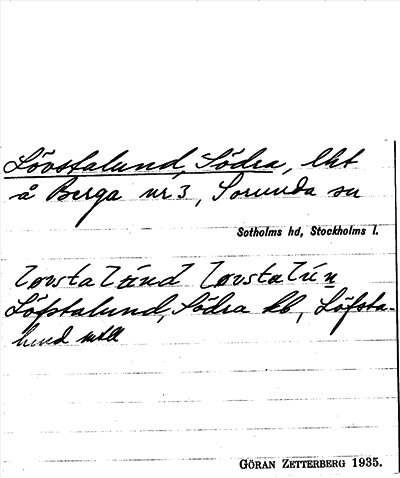 Lövstalund, Södra, lht
å Berga nr 3, Sorunda sn
Sotholms hd, Stockholms l.
Löfstalund, Södra kb, Löfsta-
lund
GÖRAN ZETTERBERG 1935.